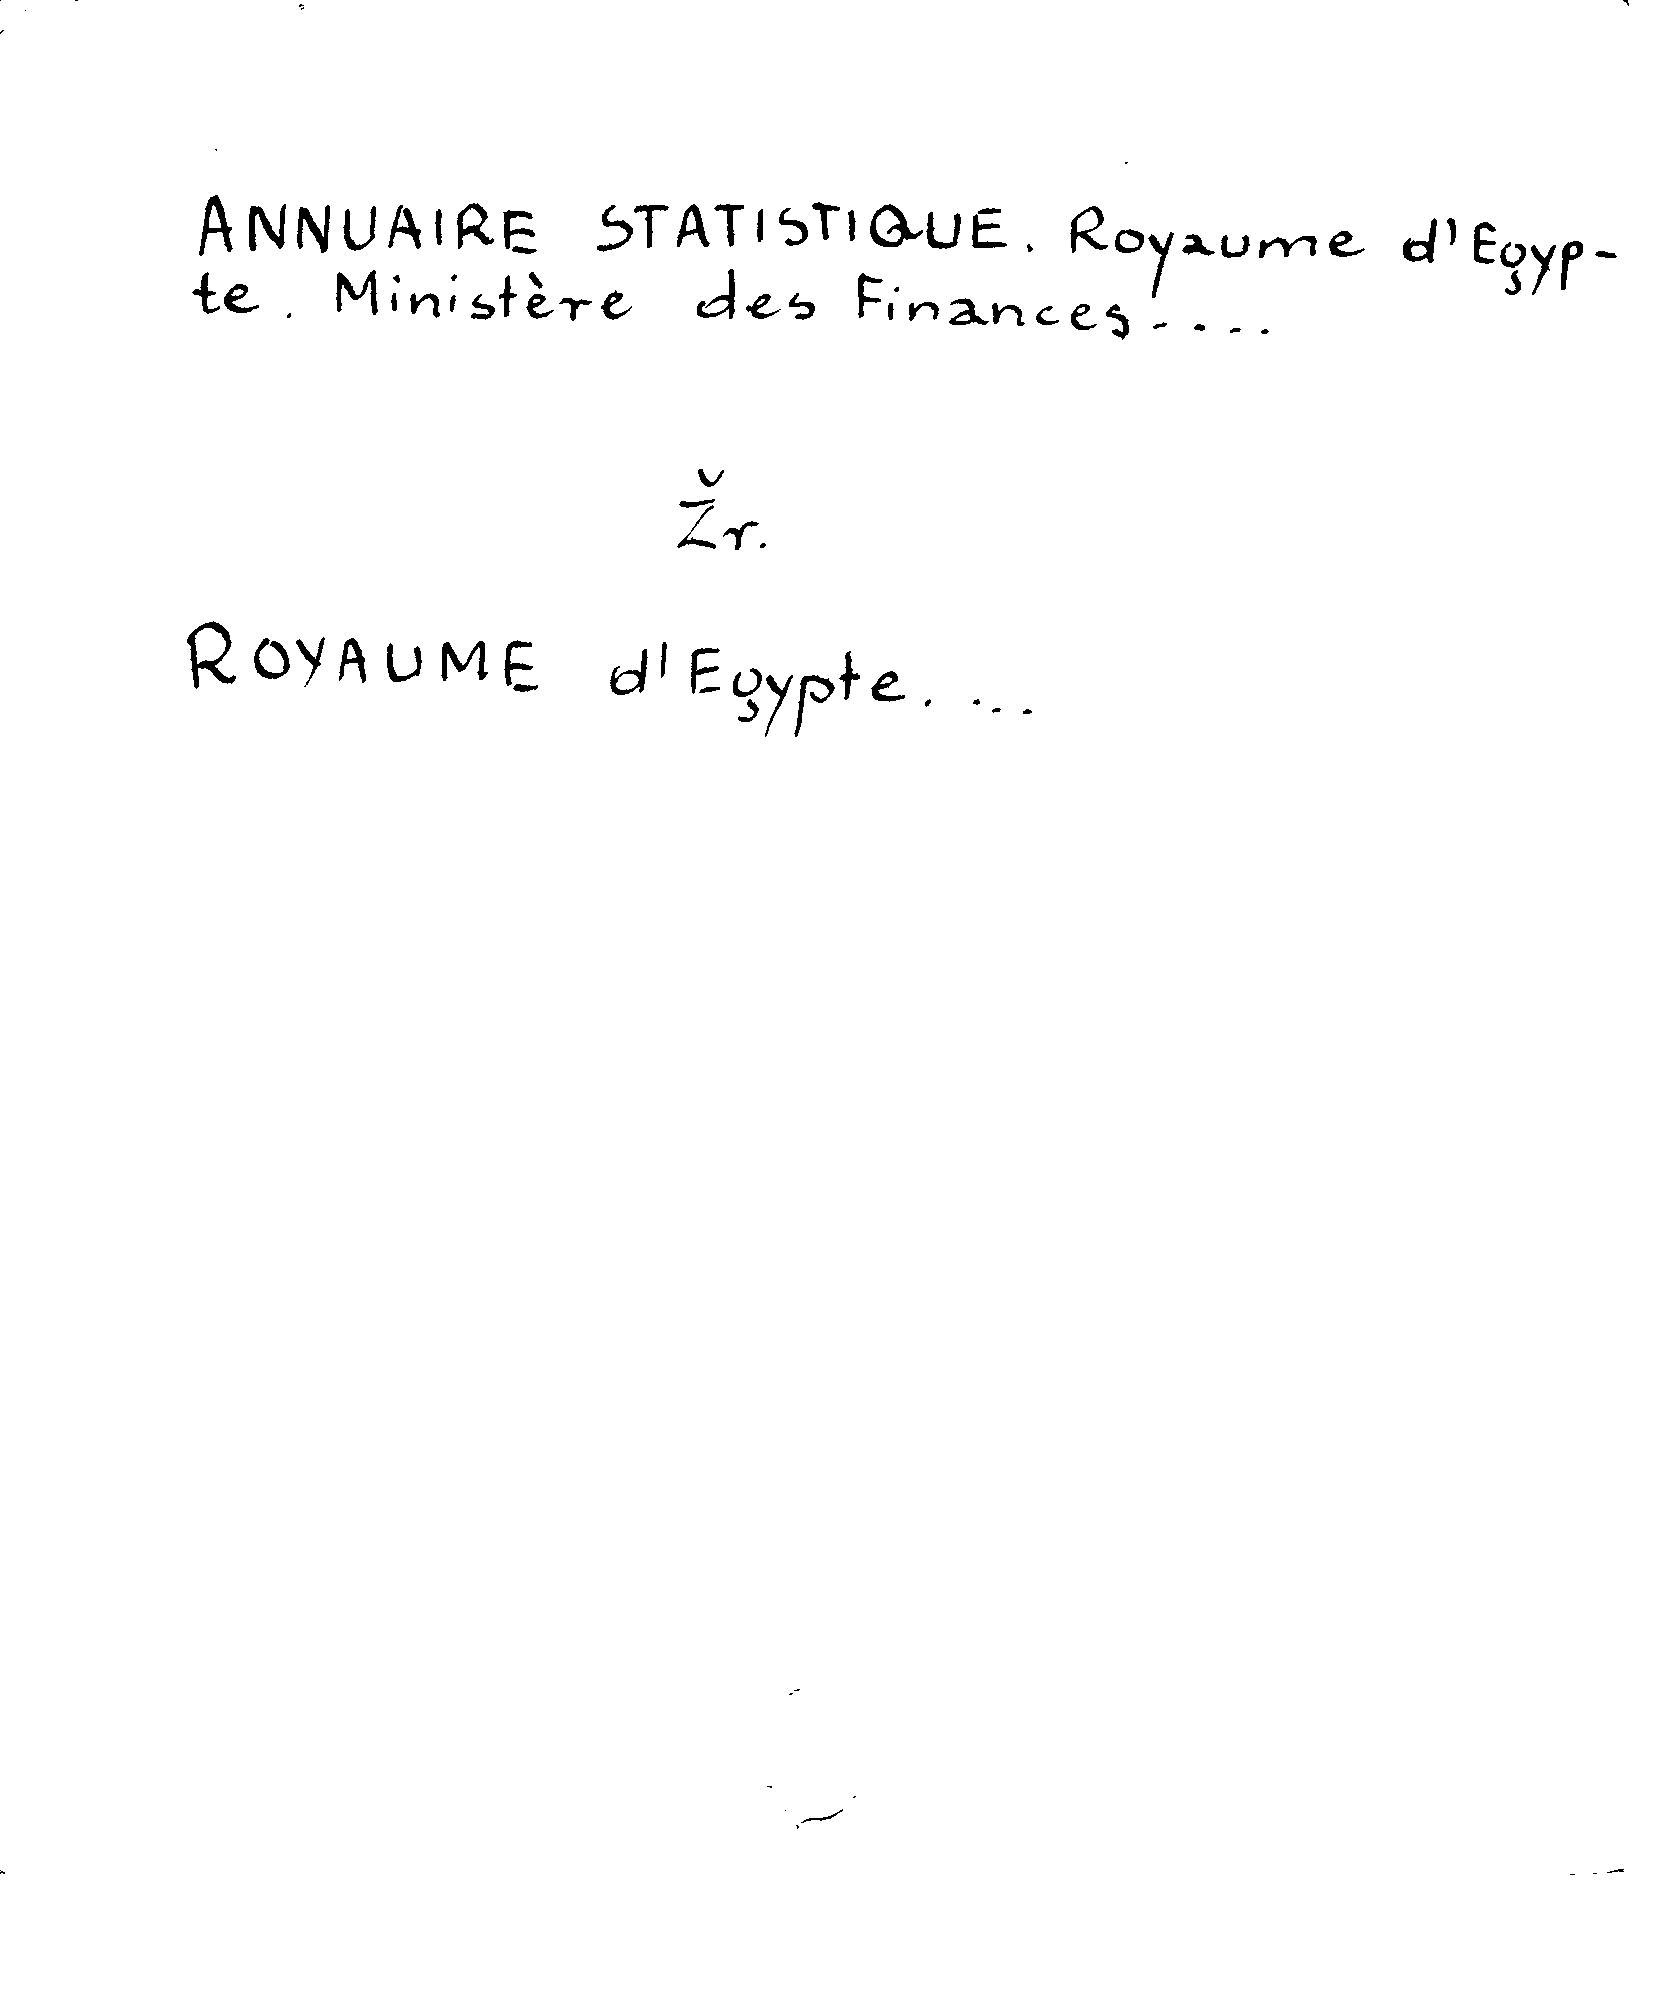 ANNUAIRE STATISTIQUE. Royaume d'Egyp-
te. Ministère des Finances....
Žr.
ROYAUME d'Egypte. ...